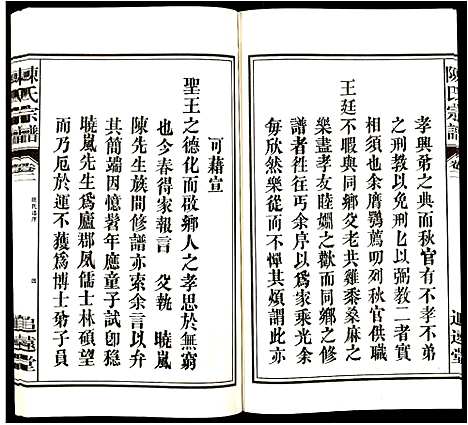 陳氏宗譜
卷二
孝興弟之典而秋官有不孝不弟
之刑教以免刑以弼教二者實
相須也余膺鶚薦叨列秋官供職
王廷不暇與同鄉父老共雞黍桑麻之
樂盡孝友睦婣之歡而同鄉之修
譜者往往丐余序以為家乘光余
每欣然樂從而不憚其煩謂此亦
可藉宣
聖王之德化而啟鄉人之孝思於無窮
也今春得家報言 父執 曉嵐
陳先生族間修譜亦索余言以弁
其簡端因憶暑年應童子試即稔
曉嵐先生為廬郡夙儒士林碩望
而乃厄於運不獲為博士弟子員
陳氏宗譜
卷二